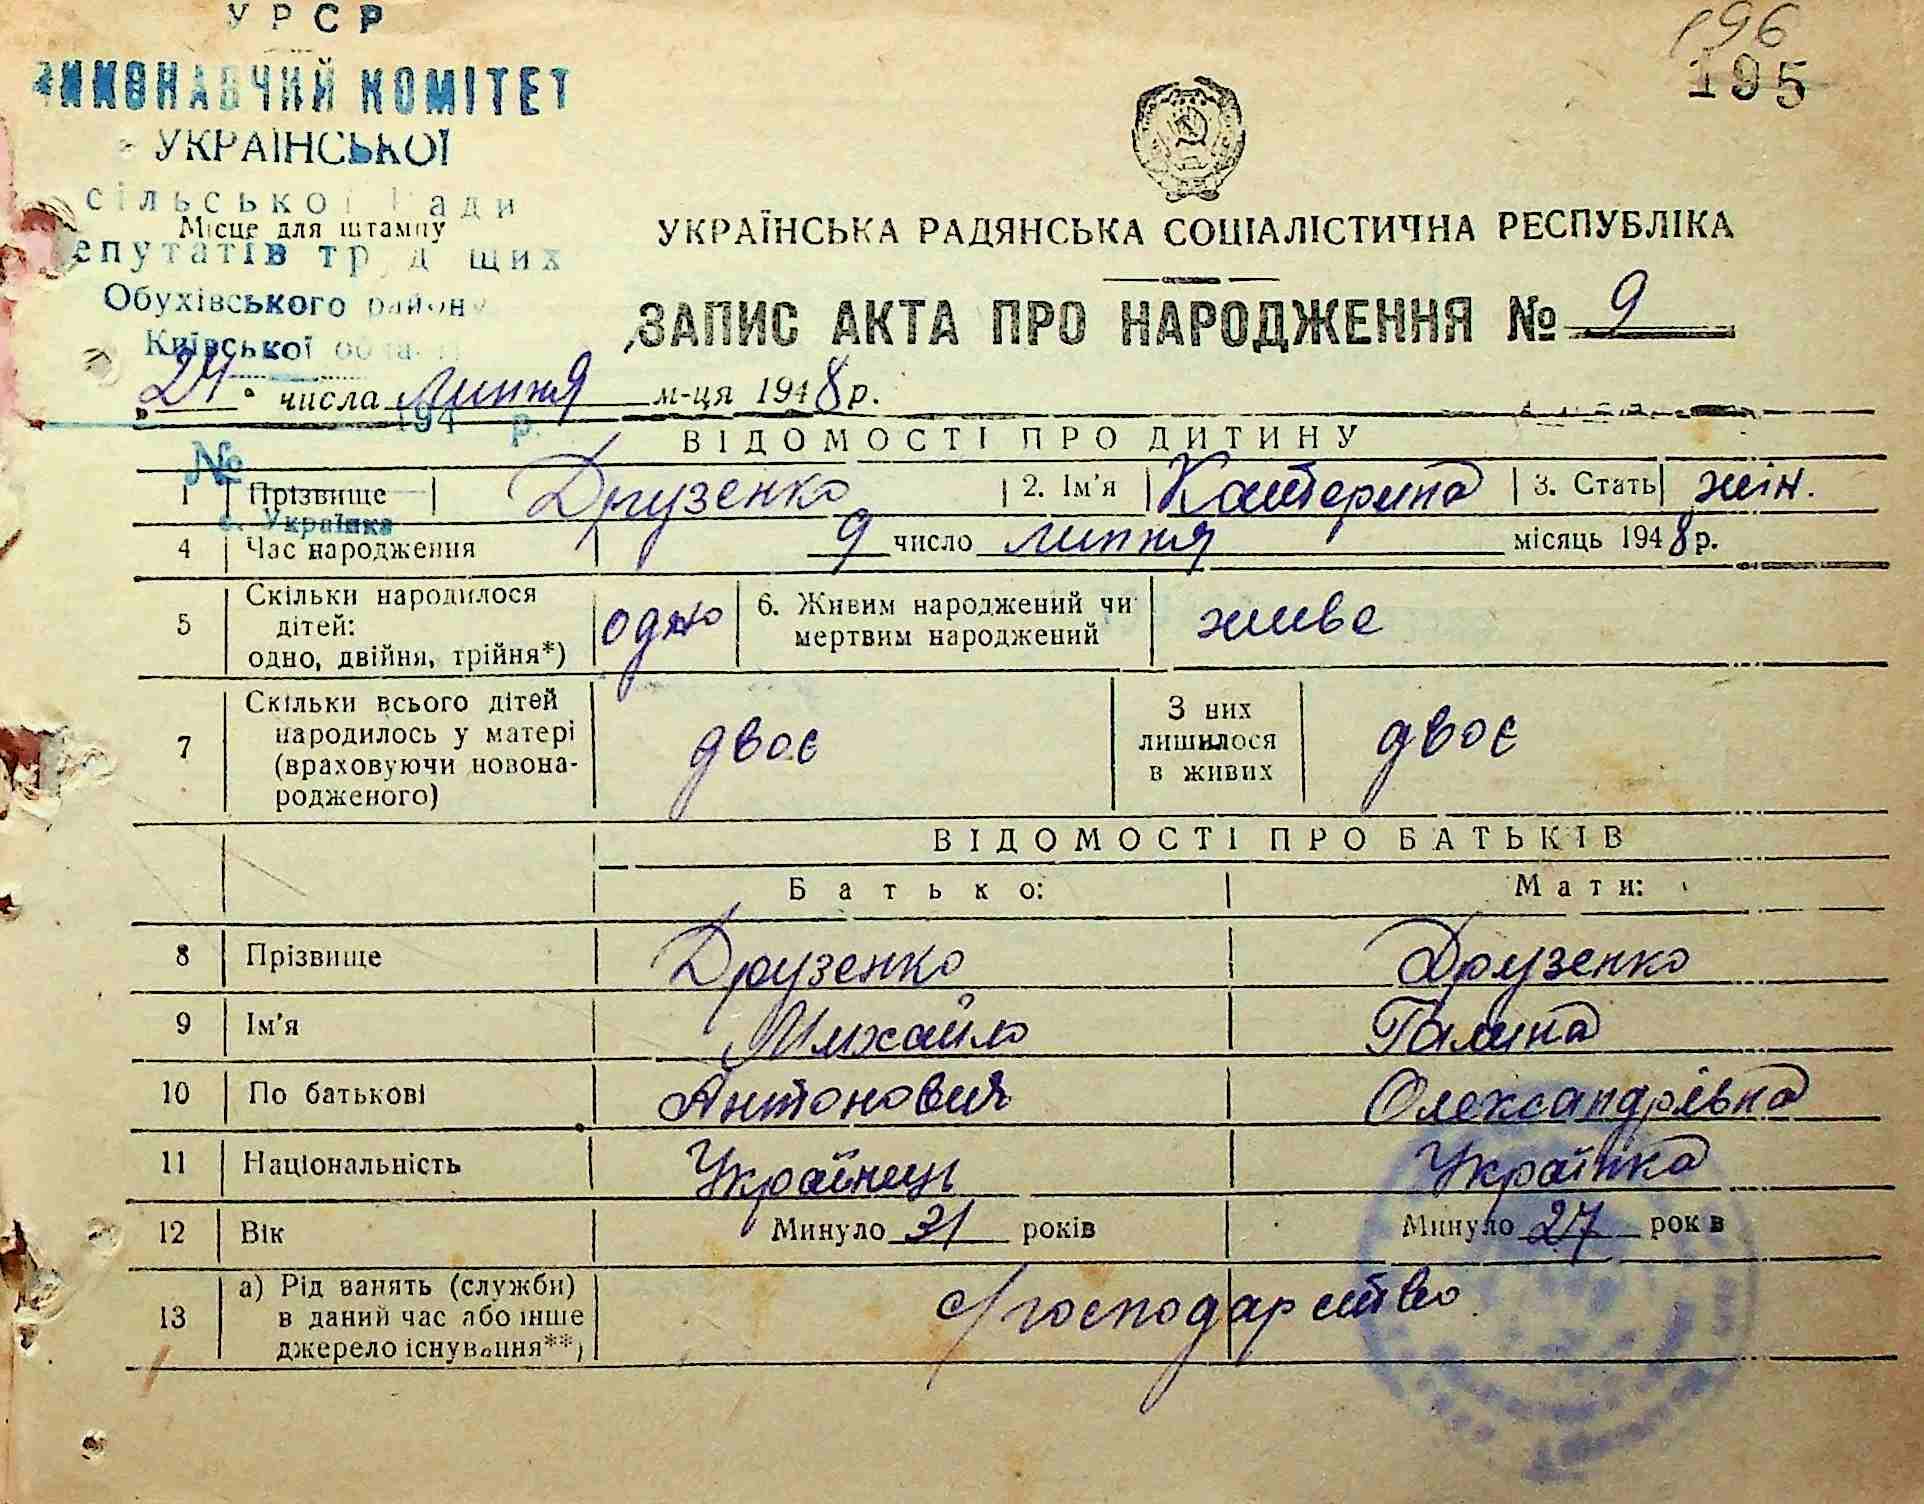 УРСР
ВИКОНАВЧИЙ КОМІТЕТ
УКРАЇНСЬКОЇ
сільської Ради
Місце для штампу
депутатів трудящих
Обухівського району
Київської області
196
195
УКРАЇНСЬКА РАДЯНСЬКА СОЦІАЛІСТИЧНА РЕСПУБЛІКА
ЗАПИС АКТА ПРО НАРОДЖЕННЯ № 9
„24“ числа липня м-ця 1948 р.
194 р.
№
с. Українка
ВІДОМОСТІ ПРО ДИТИНУ
1 Прізвище Друзенко 2. Ім'я Катерина 3. Стать жін.
4 Час народження 9 число липня місяць 1948 р.
5 Скільки народилося дітей: одно, двійня, трійня*) одно 6. Живим народжений чи мертвим народжений живе
7 Скільки всього дітей народилось у матері (враховуючи новонародженого) двоє З них лишилося в живих двоє
ВІДОМОСТІ ПРО БАТЬКІВ
Батько: Мати:
8 Прізвище Друзенко Друзенко
9 Ім'я Михайло Галина
10 По батькові Антонович Олександрівна
11 Національність Українець Українка
12 Вік Минуло 31 років Минуло 27 років
13 а) Рід занять (служби) в даний час або інше джерело існування**) с/господарство